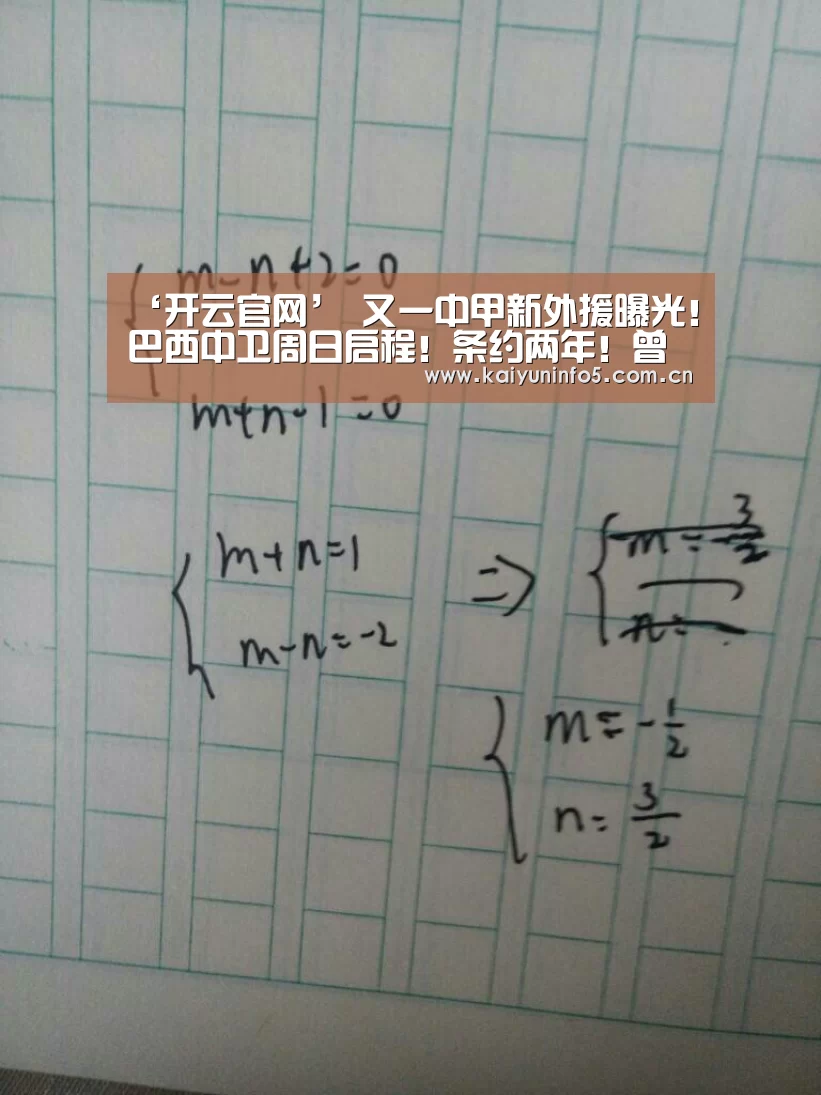 m-n+2=0
‘开云官网’ 又一中甲新外援曝光!
巴西中卫周日启程!条约两年!曾
www.kaiyuninfo5.com.cn
m+n-1=0
m+n=1
m-n=-2
=>
m=-3/2
n=
m=-1/2
n=3/2